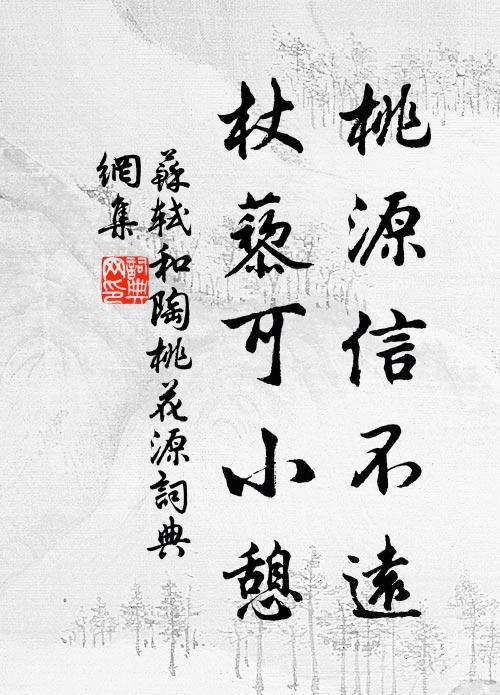 桃源信不遠
杖藜可小憩
蘇軾和陶桃花源詞典
網集
詞典
网印